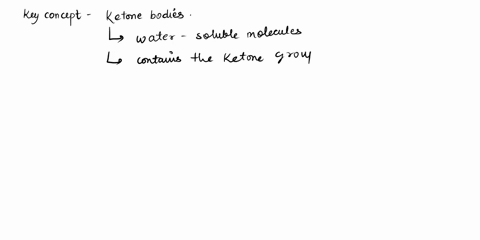 Key concept - Ketone bodies.
↳ water - soluble molecules
↳ contains the Ketone group